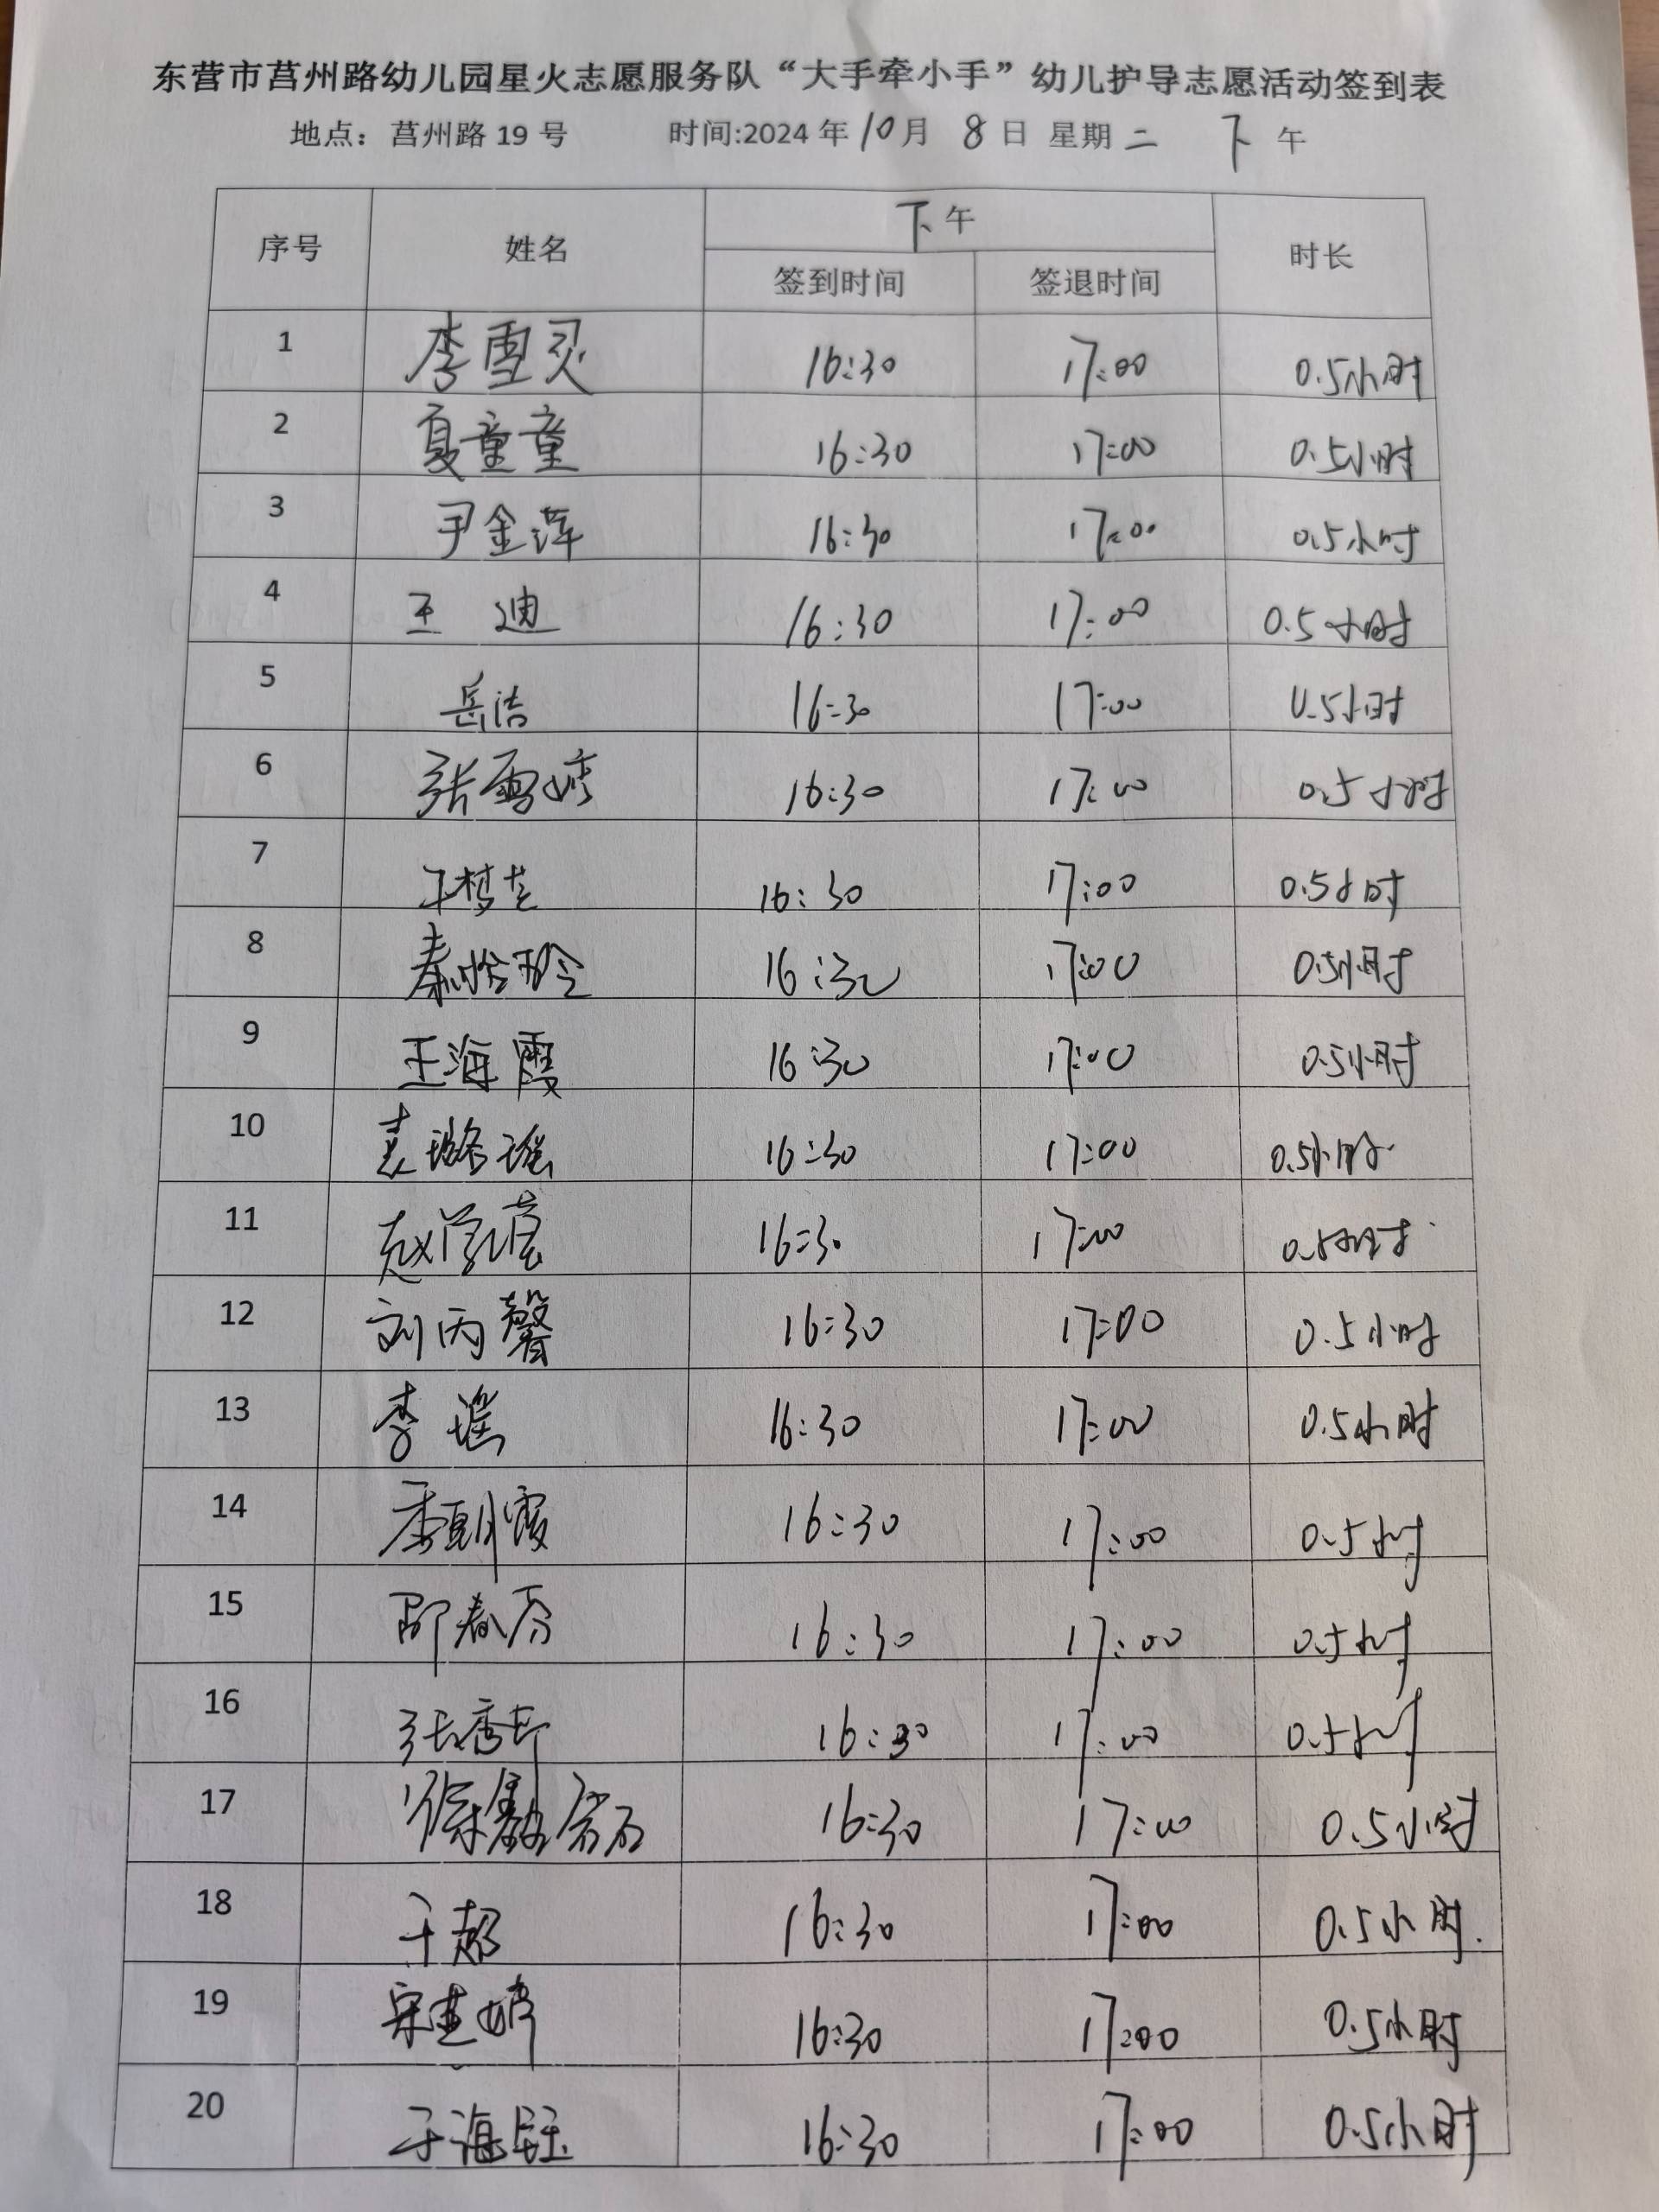 东营市莒州路幼儿园星火志愿服务队“大手牵小手”幼儿护导志愿活动签到表
地点：莒州路 19 号 时间:2024 年 10 月 8 日 星期 二 下 午
序号 姓名 下午 时长
签到时间 签退时间
1 李雪灵 16:30 17:00 0.5小时
2 夏童童 16:30 17:00 0.5小时
3 尹金萍 16:30 17:00 0.5小时
4 王 迪 16:30 17:00 0.5小时
5 岳洁 16:30 17:00 0.5小时
6 张雪婷 16:30 17:00 0.5小时
7 16:30 17:00 0.5小时
8 秦怡玲 16:30 17:00 0.5小时
9 王海霞 16:30 17:00 0.5小时
10 袁璐瑶 16:30 17:00 0.5小时
11 16:30 17:00 0.5小时
12 刘丙馨 16:30 17:00 0.5小时
13 李瑶 16:30 17:00 0.5小时
14 季朝霞 16:30 17:00 0.5小时
15 邵春芬 16:30 17:00 0.5小时
16 16:30 17:00 0.5小时
17 16:30 17:00 0.5小时
18 于超 16:30 17:00 0.5小时.
19 16:30 17:00 0.5小时
20 于海钰 16:30 17:00 0.5小时